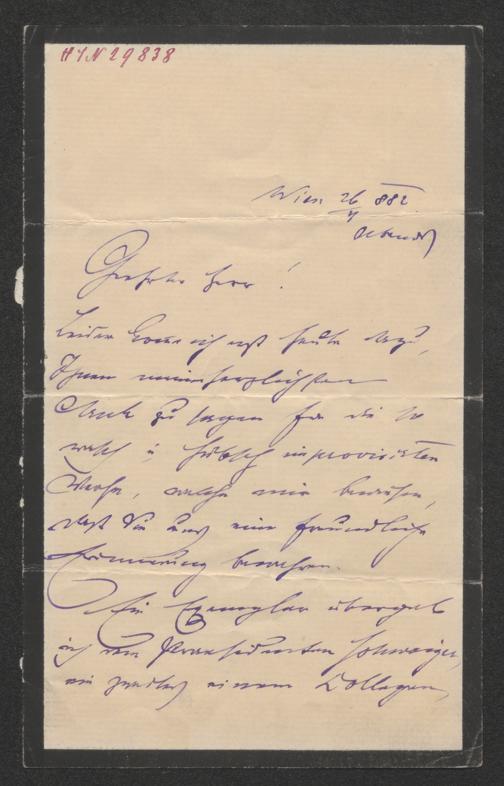 HIN 29838
Wien 26/4 882
Abends
Geehrter Herr!
Leider komme ich erst heute dazu,
Ihnen meinen herzlichsten
Dank zu sagen für die so
rasch u hübsch improvisirten
Verse, welche mir beweisen,
daß Sie uns eine freundliche
Erinnerung bewahren.
Ein Exemplar übergab
ich dem Praesidenten
ein zweites einem Collegen,